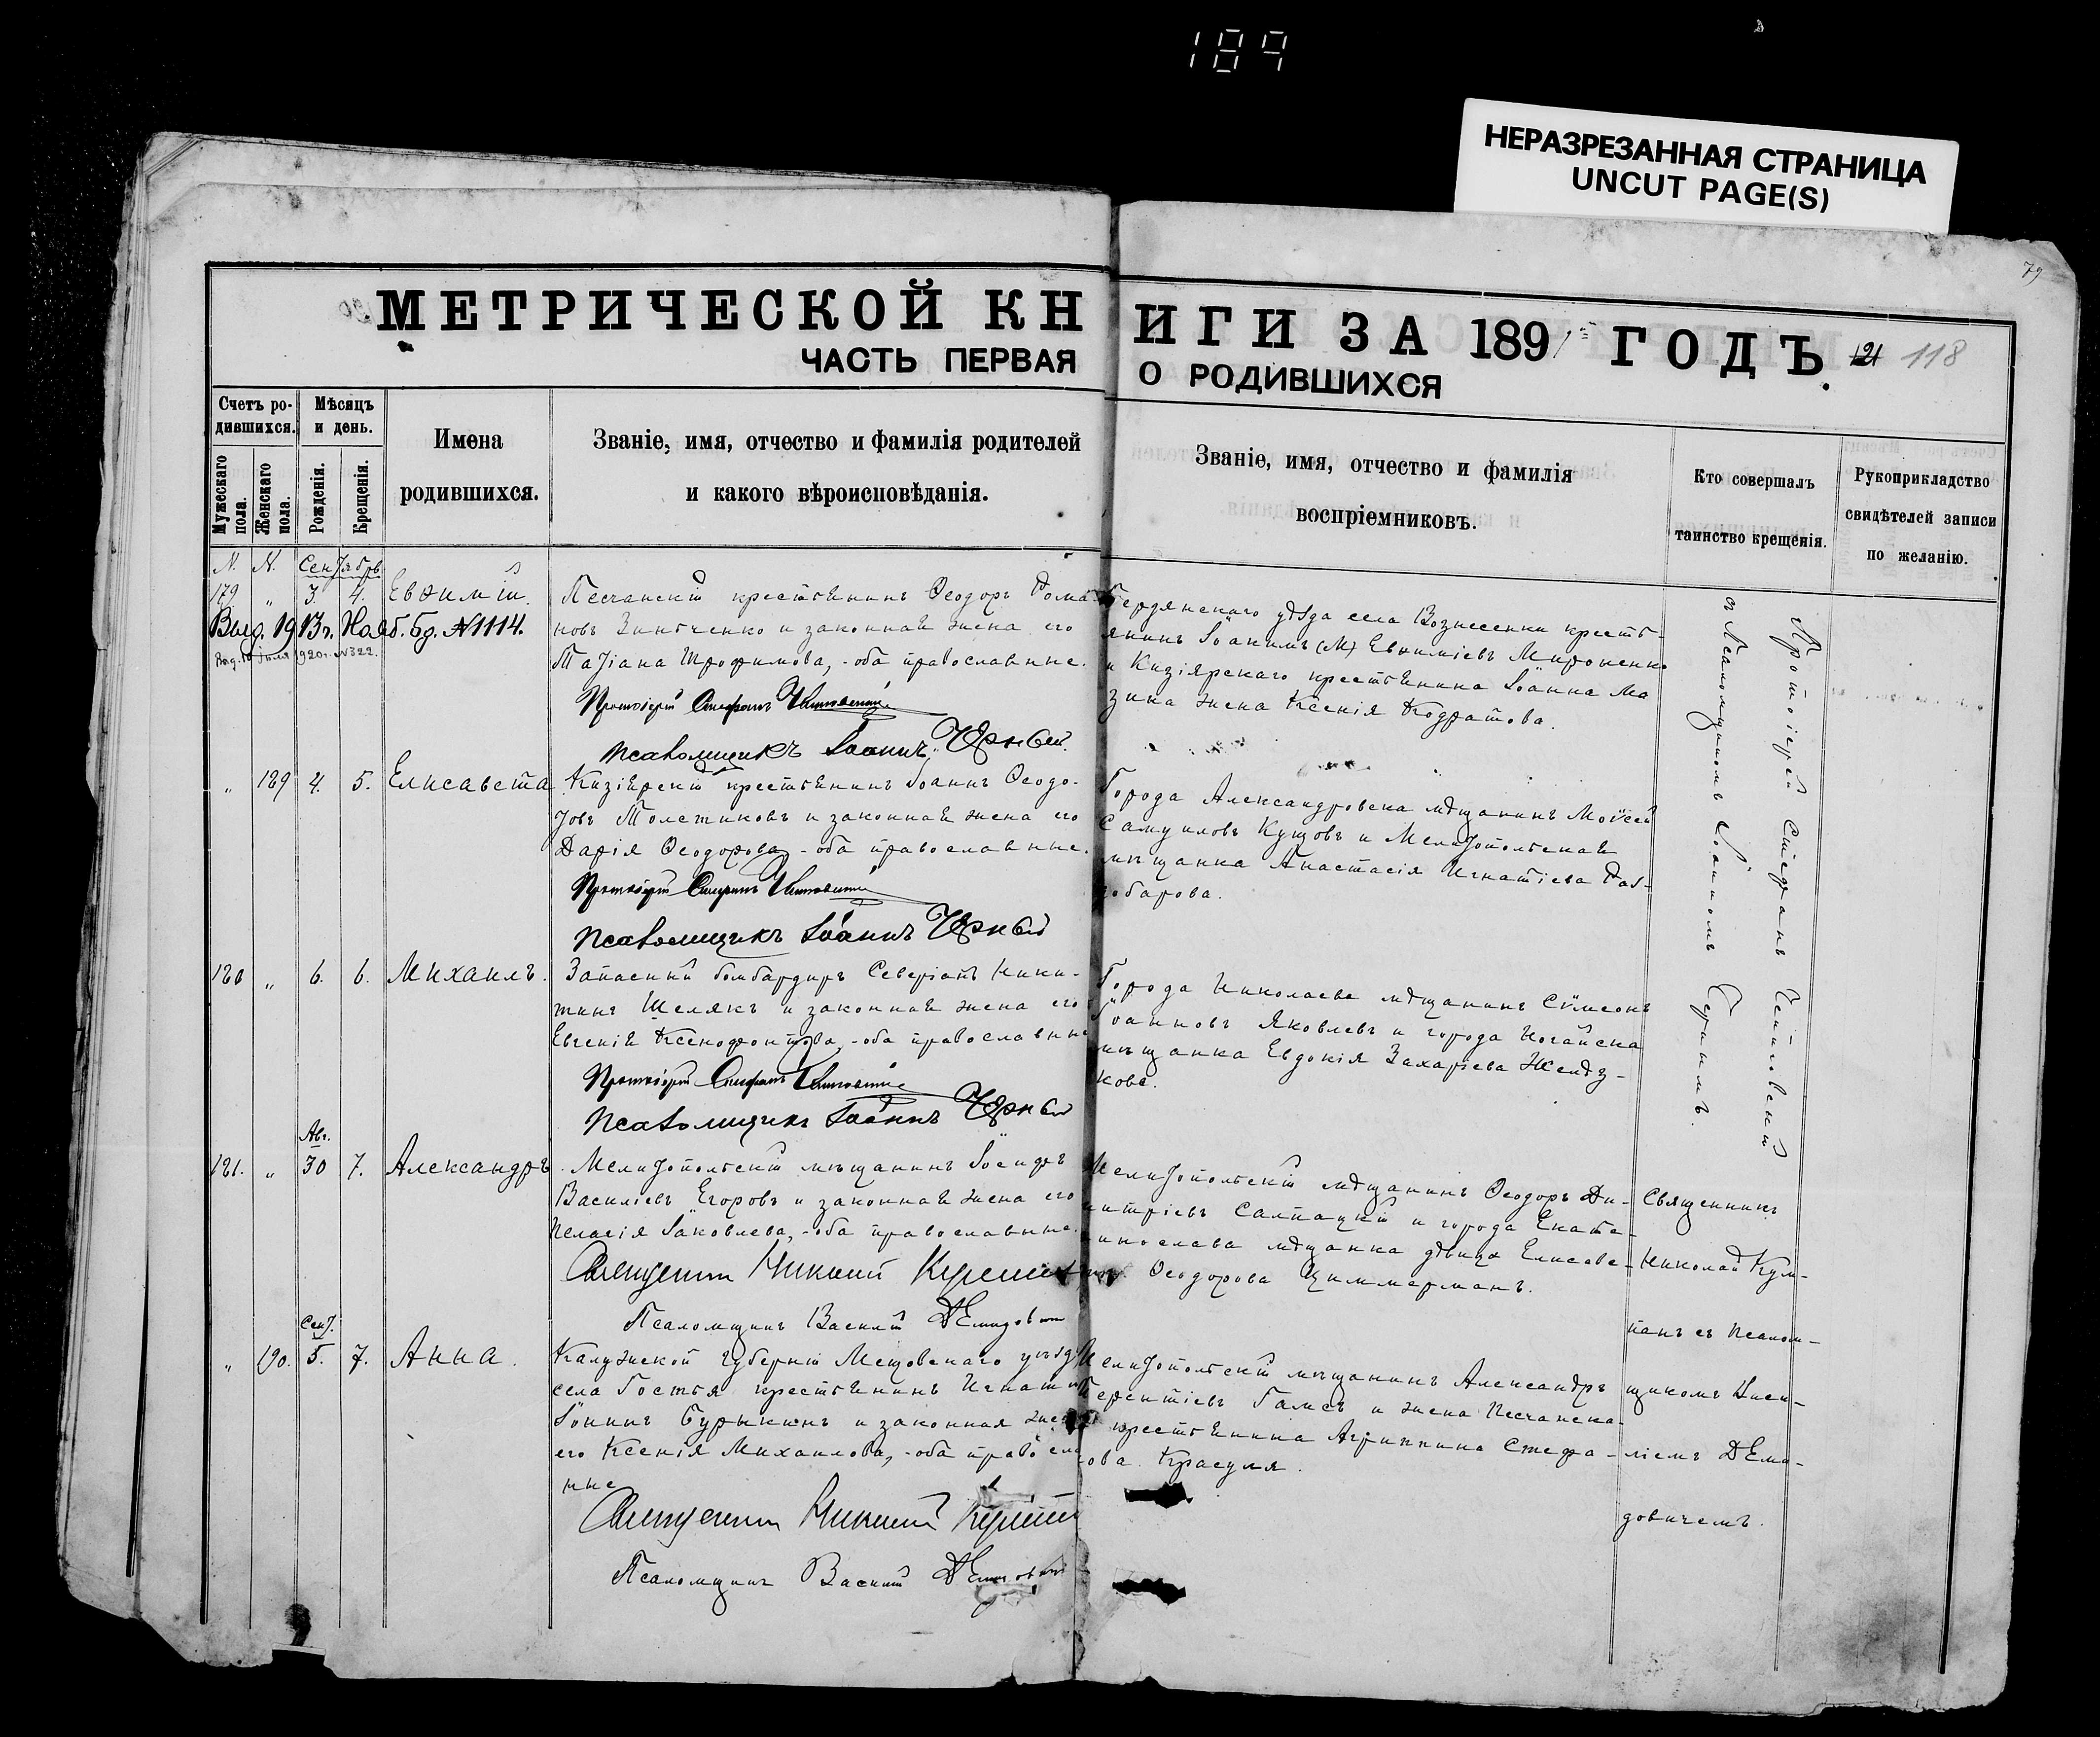 189
НЕРАЗРЕЗАННАЯ СТРАНИЦА
UNCUT PAGE(S)
79
МЕТРИЧЕСКОЙ КНИГИ ЗА 1891 ГОДЪ.
118
ЧАСТЬ ПЕРВАЯ О РОДИВШИХСЯ
Счетъ ро-
дившихся.
Мужескаго пола.
Женскаго пола.
Мѣсяцъ
и день.
Рожденія.
Крещенія.
Имена
родившихся.
Званіе, имя, отчество и фамилія родителей
и какого вѣроисповѣданія.
Званіе, имя, отчество и фамилія
воспріемниковъ.
Кто совершалъ
таинство крещенія.
Рукоприкладство
свидѣтелей записи
по желанію.
N. N. Сентябрь
179 " 3. 4. Евѳимій.
Выд. 1913г. Нояб. 6д. N1114.
1920г. N322.
Песчанскій крестьянинъ Ѳеодоръ Рома-
новъ Зинченко и законная жена его
Татіана Трофимова, - оба православные.
Протоіерей Стефанъ
Псаломщикъ Іоаннъ Черный.
Бердянскаго уѣзда села Вознесенки кресть-
янинъ Іоакимъ (М) Евѳиміевъ Мироненко
и Кизіярскаго крестьянина Іоанна Ма
зина жена Ксенія Кодратова.
Протоіерей Стефанъ
съ Псаломщикомъ Іоанномъ Чернымъ.
" 189 4. 5. Елисавета
Кизіярскій крестьянинъ Іоаннъ Ѳеодо-
ровъ Толстиковъ и законная жена его
Дарія Ѳеодорова, - оба православные.
Протоіерей Стефанъ
Псаломщикъ Іоаннъ Черный
Города Александровска мѣщанинъ Моѵсей
Самуиловъ Купцовъ и Мелитопольская
мѣщанка Анастасія Игнатіева Раз-
добарова.
180 " 6. 6. Михаилъ.
Запасный бомбардиръ Северіанъ Ники-
тинъ Шелякъ и законная жена его
Евгенія Ксенофонтова, - оба православные
Протоіерей Стефанъ
Псаломщикъ Іоаннъ Черный
Города Николаева мѣщанинъ Сѵмеонъ
Іоанновъ Яковлевъ и города Ногайска
мѣщанка Евдокія Захаріева
кова.
Авг.
181. " 30 7. Александръ.
Мелитопольскій мѣщанинъ Іосифъ
Василіевъ Егоровъ и законная жена его
Пелагія Іаковлева, - оба православные.
Священникъ Николай
Псаломщикъ Василій Демидовичъ
Мелитопольскій мѣщанинъ Ѳеодоръ Ди-
митріевъ и города Екате-
ринослава мѣщанка дѣвица Елисаве-
та Ѳеодорова Циммерманъ.
Священникъ
Николай
съ Псалом-
щикомъ Васи-
ліемъ Деми-
довичемъ.
Сент.
" 190. 5. 7. Анна.
Калужской губерніи Мещовскаго уѣзда
села Гостья крестьянинъ Игнатій
Іоаннъ Бурыкинъ и законная жена
его Ксенія Михаилова, - оба православ-
ные
Священникъ Николай
Псаломщикъ Василій Демидовичъ
Мелитопольскій мѣщанинъ Александръ
Терентіевъ и жена Песчанска-
го крестьянина Агриппина Стефа-
нова Красуля.